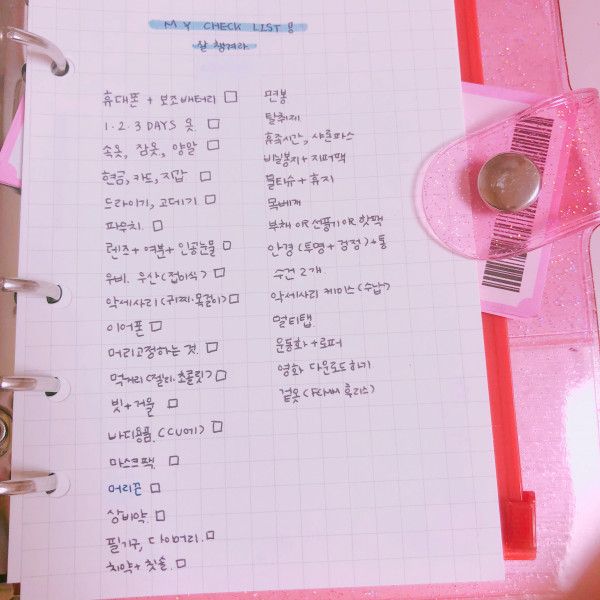 MY CHECK LIST
잘 챙겨라
휴대폰 + 보조배터리
1·2·3 DAYS 옷.
속옷, 잠옷, 양말
현금, 카드, 지갑
드라이기, 고데기
파우치.
렌즈 + 여분 + 인공눈물
우비. 우산(접이식)
악세사리(귀찌·목걸이)
이어폰
머리고정하는 것.
먹거리(젤리·초콜릿)
빗 + 거울
바디용품. (CU에)
마스크팩.
머리끈
상비약.
필기구, 다이어리.
치약 + 칫솔.
면봉
탈취제
휴족시간, 샤론파스
비닐봉지 + 지퍼팩
물티슈 + 휴지
목베개
부채 OR 선풍기 OR 핫팩
안경 (투명 + 검정) + 통
수건 2개
악세사리 케이스 (수납)
멀티탭.
운동화 + 로퍼
영화 다운로드하기
겉옷 (FCMM 후리스)